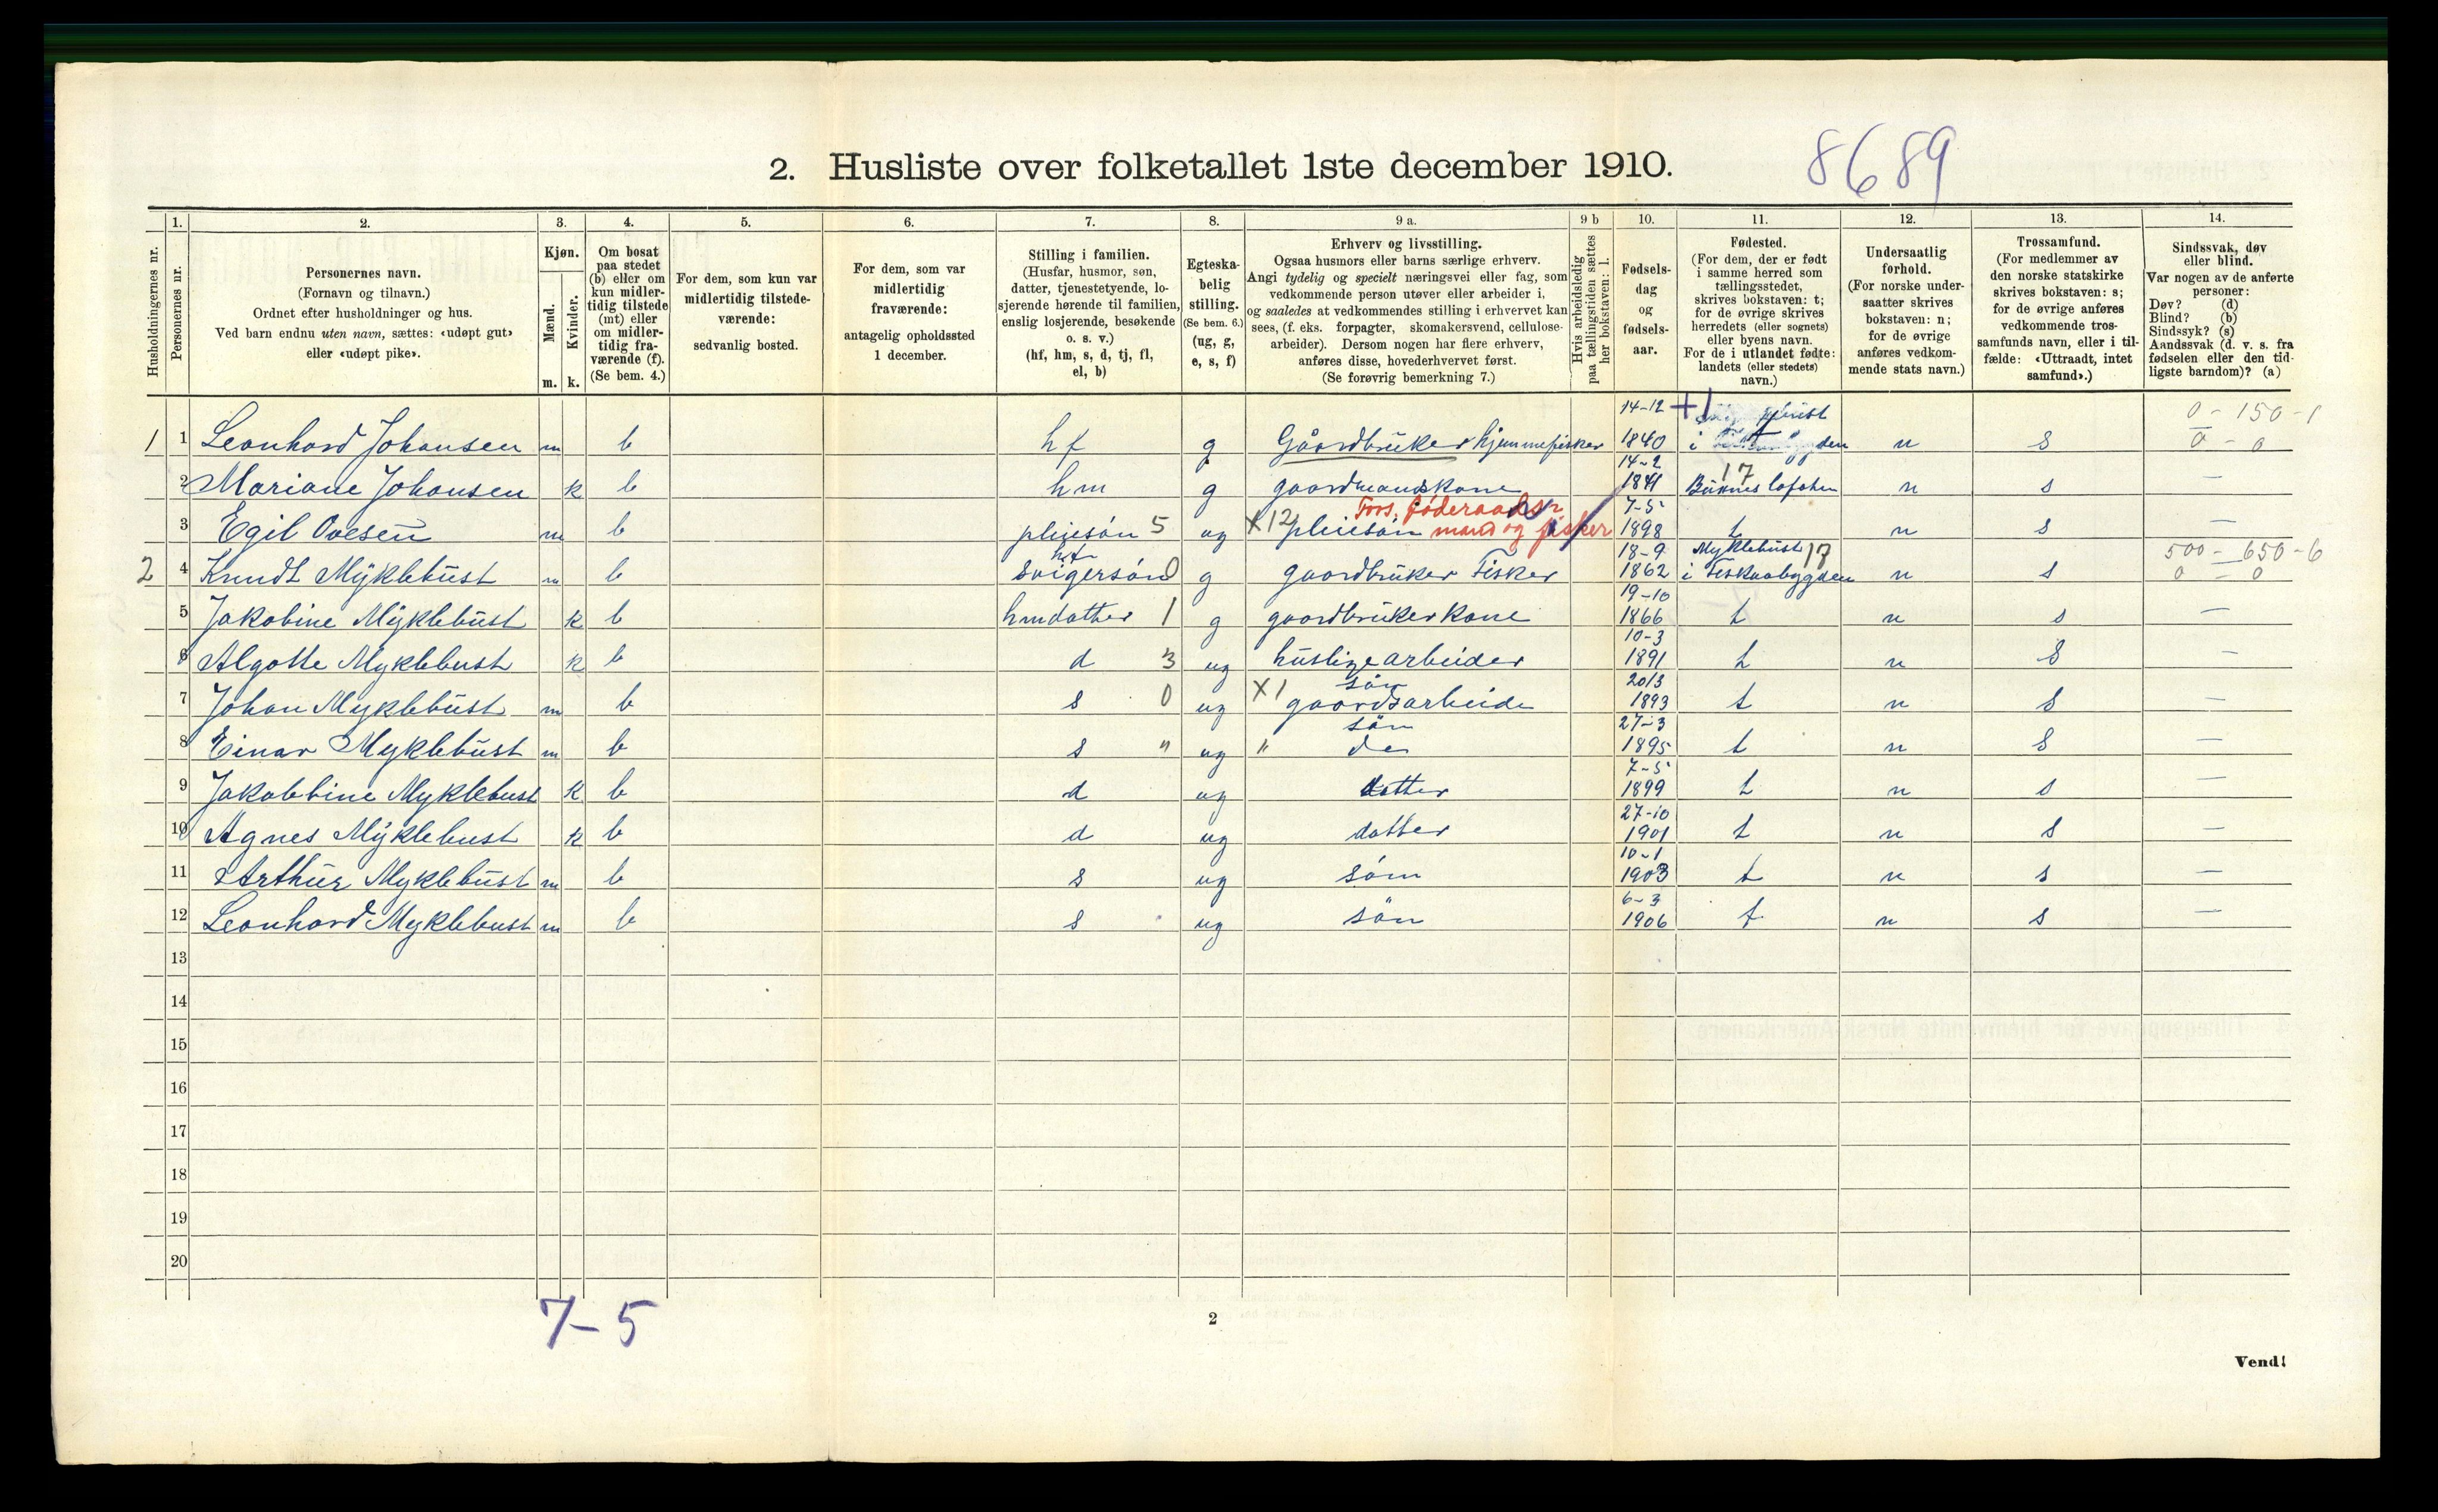 8689
2. Husliste over folketallet 1ste december 1910.
Husholdningernes nr.
1. Personernes nr.
2. Personernes navn.
(Fornavn og tilnavn.)
Ordnet efter husholdninger og hus.
Ved barn endnu uten navn, sættes: «udøpt gut»
eller «udøpt pike».
3. Kjøn.
Mænd. m.
Kvinder. k.
4. Om bosat
paa stedet
(b) eller om
kun midler-
tidig tilstede
(mt) eller
om midler-
tidig fra-
værende (f).
(Se bem. 4.)
5. For dem, som kun var
midlertidig tilstede-
værende:
sedvanlig bosted.
6. For dem, som var
midlertidig
fraværende:
antagelig opholdssted
1 december.
7. Stilling i familien.
(Husfar, husmor, søn,
datter, tjenestetyende, lo-
sjerende hørende til familien,
enslig losjerende, besøkende
o. s. v.)
(hf, hm, s, d, tj, fl,
el, b)
8. Egteska-
belig
stilling.
(Se bem. 6.)
(ug, g,
e, s, f)
9 a. Erhverv og livsstilling.
Ogsaa husmors eller barns særlige erhverv.
Angi tydelig og specielt næringsvei eller fag, som
vedkommende person utøver eller arbeider i,
og saaledes at vedkommendes stilling i erhvervet kan
sees, (f. eks. forpagter, skomakersvend, cellulose-
arbeider). Dersom nogen har flere erhverv,
anføres disse, hovederhvervet først.
(Se forøvrig bemerkning 7.)
9 b Hvis arbeidsledig
paa tællingstiden sættes
her bokstaven: l.
10. Fødsels-
dag
og
fødsels-
aar.
11. Fødested.
(For dem, der er født
i samme herred som
tællingsstedet,
skrives bokstaven: t;
for de øvrige skrives
herredets (eller sognets)
eller byens navn.
For de i utlandet fødte:
landets (eller stedets)
navn.)
12. Undersaatlig
forhold.
(For norske under-
saatter skrives
bokstaven: n;
for de øvrige
anføres vedkom-
mende stats navn.)
13. Trossamfund.
(For medlemmer av
den norske statskirke
skrives bokstaven: s;
for de øvrige anføres
vedkommende tros-
samfunds navn, eller i til-
fælde: «Uttraadt, intet
samfund».)
14. Sindssvak, døv
eller blind.
Var nogen av de anførte
personer:
Døv? (d)
Blind? (b)
Sindssyk? (s)
Aandssvak (d. v. s. fra
fødselen eller den tid-
ligste barndom)? (a)
1 1 Leonhard Johansen m b hf g Gåardbrüker hjemmefisker 14-12 1840 +1 i n S 0 - 150 - 1 0 - 0
2 Mariane Johansen k b hm g gaardmandskone 14-2 1841 17 Büknes lofoten n s —
3 Egil Ovesen m b pleiesön 5 ug X12 pleiesön Fors. føderaads- mand og fisker 7-5 1898 t n s —
2 4 Knudt Myklebüst m b hf svigersön 0 g gaardbrüker Fisker 18-9 1862 Myklebüst 17 i Fiskaabygden n s 500 - 650 - 6 0 - 0
5 Jakobine Myklebüst k b hm datter 1 g gaardbrüker kone 19-10 1866 t n s —
6 Algotte Myklebust k b d 3 ug hüslige arbeider 10-3 1891 t n S —
7 Johan Myklebüst m b s 0 ug X1 sön gaardsarbeide 20/3 1893 t n S —
8 Einar Myklebüst m b s " ug " sön do 27-3 1895 t n S —
9 Jakobbine Myklebust k b d ug datter 7-5 1899 t n s —
10 Agnes Myklebust k b d ug datter 27-10 1901 t n S —
11 Arthür Myklebüst m b s ug söm 10-1 1903 t n s —
12 Leonhard Myklebust m b s ug sön 6-3 1906 t n s —
13
14
15
16
17
18
19
20
7-5
2
Vend!